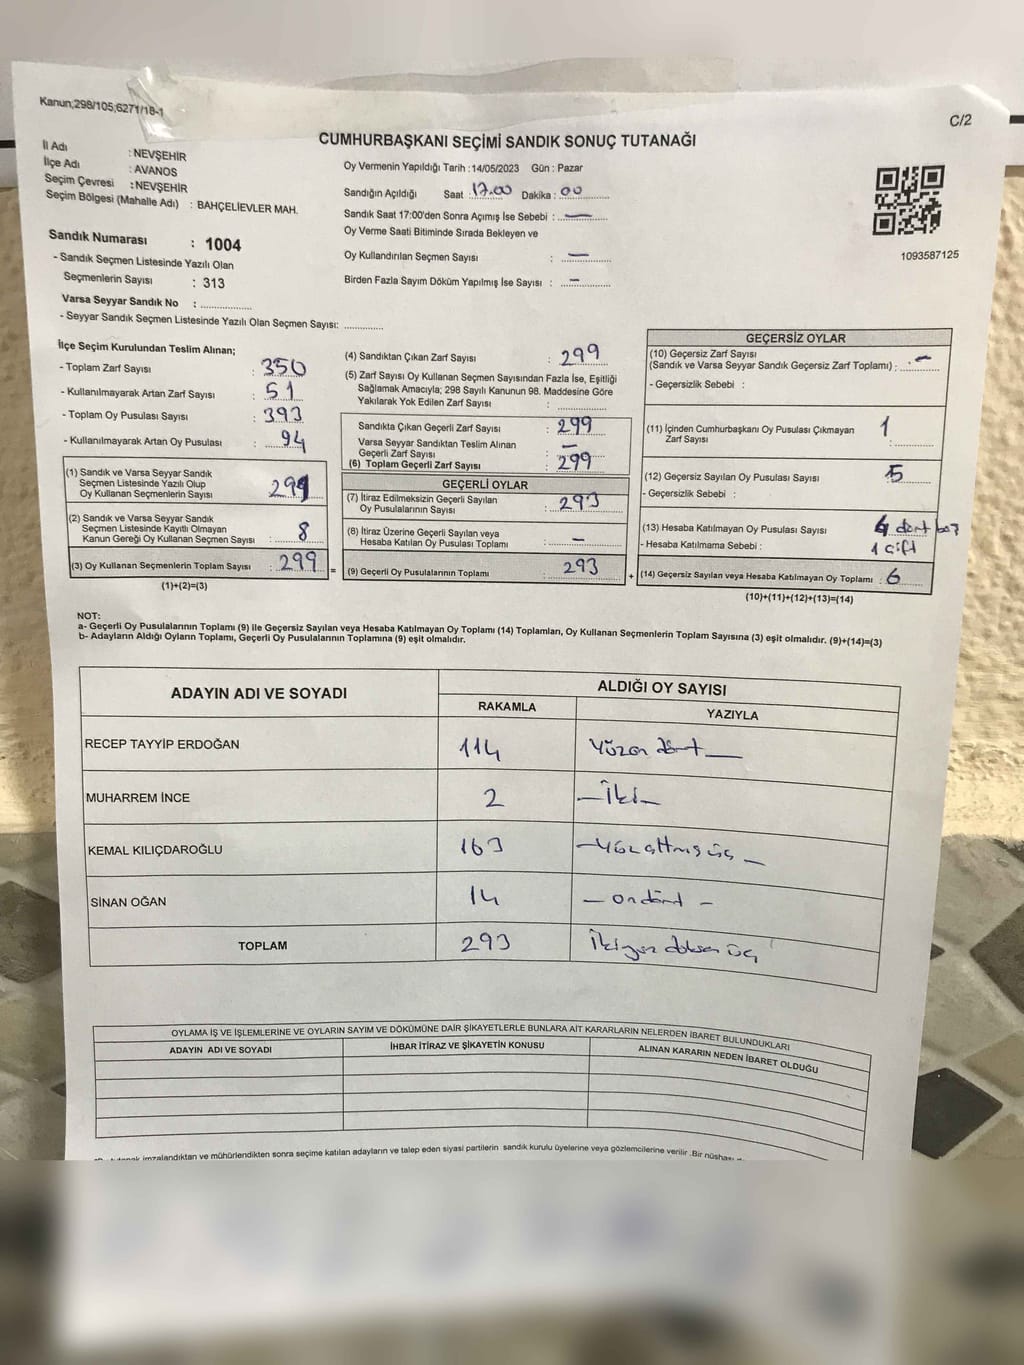 Kanun;298/105;6271/18-1
C/2
CUMHURBAŞKANI SEÇİMİ SANDIK SONUÇ TUTANAĞI
İl Adı : NEVŞEHİR
İlçe Adı : AVANOS
Seçim Çevresi : NEVŞEHİR
Seçim Bölgesi (Mahalle Adı) : BAHÇELİEVLER MAH.
Sandık Numarası : 1004
- Sandık Seçmen Listesinde Yazılı Olan
Seçmenlerin Sayısı : 313
Varsa Seyyar Sandık No : ..............
- Seyyar Sandık Seçmen Listesinde Yazılı Olan Seçmen Sayısı: ............
Oy Vermenin Yapıldığı Tarih : 14/05/2023 Gün : Pazar
Sandığın Açıldığı Saat : 17.00 Dakika : 00
Sandık Saat 17:00'den Sonra Açımış İse Sebebi : —
Oy Verme Saati Bitiminde Sırada Bekleyen ve
Oy Kullandırılan Seçmen Sayısı : —
Birden Fazla Sayım Döküm Yapılmış İse Sayısı : —
1093587125
İlçe Seçim Kurulundan Teslim Alınan;
- Toplam Zarf Sayısı : 350
- Kullanılmayarak Artan Zarf Sayısı : 51
- Toplam Oy Pusulası Sayısı : 393
- Kullanılmayarak Artan Oy Pusulası : 94
(1) Sandık ve Varsa Seyyar Sandık
Seçmen Listesinde Yazılı Olup
Oy Kullanan Seçmenlerin Sayısı 291
(2) Sandık ve Varsa Seyyar Sandık
Seçmen Listesinde Kayıtlı Olmayan
Kanun Gereği Oy Kullanan Seçmen Sayısı : 8
(3) Oy Kullanan Seçmenlerin Toplam Sayısı : 299
(1)+(2)=(3)
(4) Sandıktan Çıkan Zarf Sayısı : 299
(5) Zarf Sayısı Oy Kullanan Seçmen Sayısından Fazla İse, Eşitliği
Sağlamak Amacıyla; 298 Sayılı Kanunun 98. Maddesine Göre
Yakılarak Yok Edilen Zarf Sayısı : ..............
Sandıkta Çıkan Geçerli Zarf Sayısı : 299
Varsa Seyyar Sandıktan Teslim Alınan
Geçerli Zarf Sayısı : —
(6) Toplam Geçerli Zarf Sayısı : 299
GEÇERLİ OYLAR
(7) İtiraz Edilmeksizin Geçerli Sayılan
Oy Pusulalarının Sayısı : 293
(8) İtiraz Üzerine Geçerli Sayılan veya
Hesaba Katılan Oy Pusulası Toplamı : —
(9) Geçerli Oy Pusulalarının Toplamı : 293
GEÇERSİZ OYLAR
(10) Geçersiz Zarf Sayısı
(Sandık ve Varsa Seyyar Sandık Geçersiz Zarf Toplamı) : —
- Geçersizlik Sebebi :
(11) İçinden Cumhurbaşkanı Oy Pusulası Çıkmayan
Zarf Sayısı : 1
(12) Geçersiz Sayılan Oy Pusulası Sayısı : 5
- Geçersizlik Sebebi :
(13) Hesaba Katılmayan Oy Pusulası Sayısı 4 dört boş
- Hesaba Katılmama Sebebi : 1 çift
(14) Geçersiz Sayılan veya Hesaba Katılmayan Oy Toplamı : 6
(10)+(11)+(12)+(13)=(14)
NOT:
a- Geçerli Oy Pusulalarının Toplamı (9) ile Geçersiz Sayılan veya Hesaba Katılmayan Oy Toplamı (14) Toplamları, Oy Kullanan Seçmenlerin Toplam Sayısına (3) eşit olmalıdır. (9)+(14)=(3)
b- Adayların Aldığı Oyların Toplamı, Geçerli Oy Pusulalarının Toplamına (9) eşit olmalıdır.
ADAYIN ADI VE SOYADI ALDIĞI OY SAYISI
RAKAMLA YAZIYLA
RECEP TAYYİP ERDOĞAN 114 Yüzon dört —
MUHARREM İNCE 2 — İki —
KEMAL KILIÇDAROĞLU 163 — Yüz altmış üç —
SİNAN OĞAN 14 — on dört —
TOPLAM 293 İkiyüz doksan üç
OYLAMA İŞ VE İŞLEMLERİNE VE OYLARIN SAYIM VE DÖKÜMÜNE DAİR ŞİKAYETLERLE BUNLARA AİT KARARLARIN NELERDEN İBARET BULUNDUKLARI
ADAYIN ADI VE SOYADI İHBAR İTİRAZ VE ŞİKAYETİN KONUSU ALINAN KARARIN NEDEN İBARET OLDUĞU
imzalandıktan ve mühürlendikten sonra seçime katılan adayların ve talep eden siyasi partilerin sandık kurulu üyelerine veya gözlemcilerine verilir .Bir nüshası